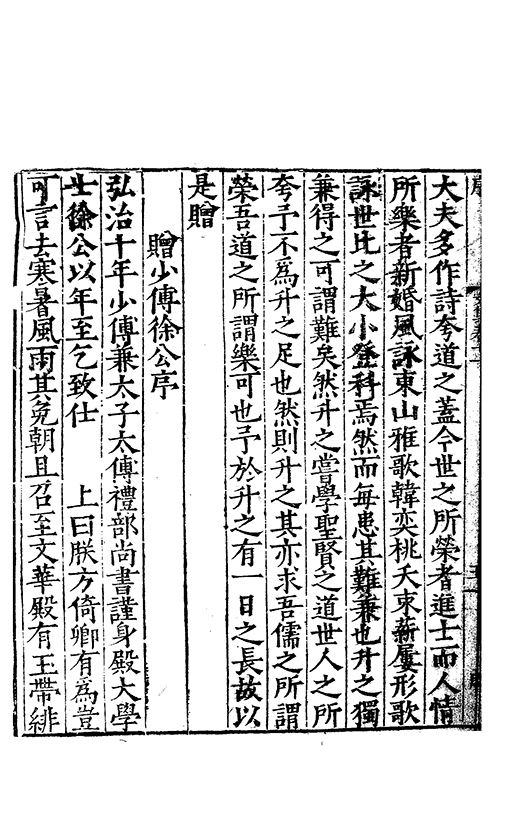 大夫多作詩夸道之蓋今世之所榮者進士而人情
所樂者新婚風詠東山雅歌韓奕桃夭束薪屢形歌
詠世比之大小登科焉然而每患其難兼也升之獨
兼得之可謂難矣然升之嘗學聖賢之道世人之所
夸予不爲升之足也然則升之其亦求吾儒之所謂
榮吾道之所謂樂可也予於升之有一日之長故以
是贈
贈少傅徐公亭
弘治十年少傅兼太子太傅禮部尚書謹身殿大學
士徐公以年至乞致仕 上曰朕方倚卿有爲豈
可言去寒暑風雨其免朝且召至文華殿有玉帶緋